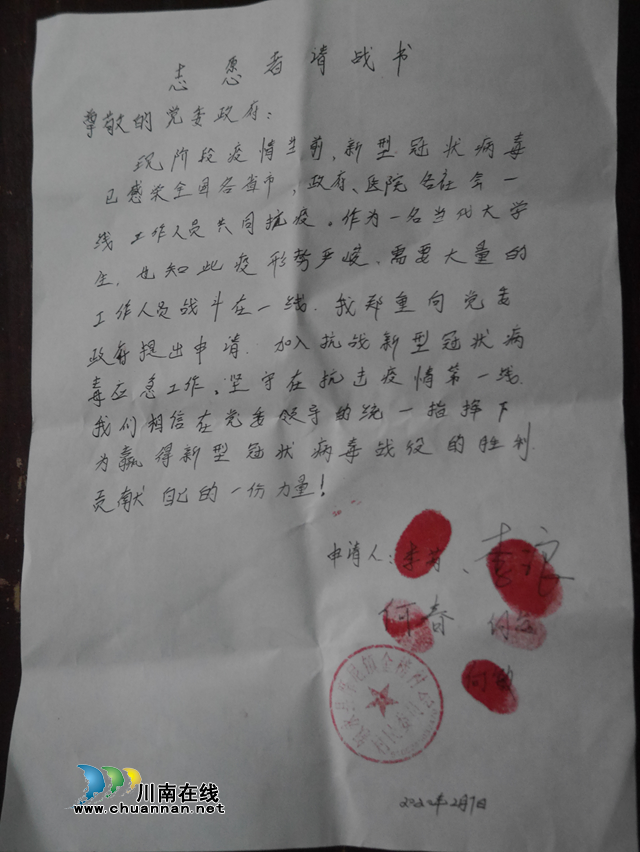 志愿者请战书
尊敬的党委政府：
现阶段疫情当前，新型冠状病毒
已感染全国各省市，政府、医院各社会一
线工作人员共同抗疫。作为一名当代大学
生，也知此疫形势严峻，需要大量的
工作人员战斗在一线，我郑重向党委
政府提出申请，加入抗战新型冠状病
毒应急工作，坚守在抗击疫情第一线，
我们相信在党委领导的统一指挥下
为赢得新型冠状病毒战役的胜利
贡献自己的一份力量！
申请人：李、李浪
何春 何
何敏
村民委员会
2020年2月7日
川南在线
www.chuannan.net